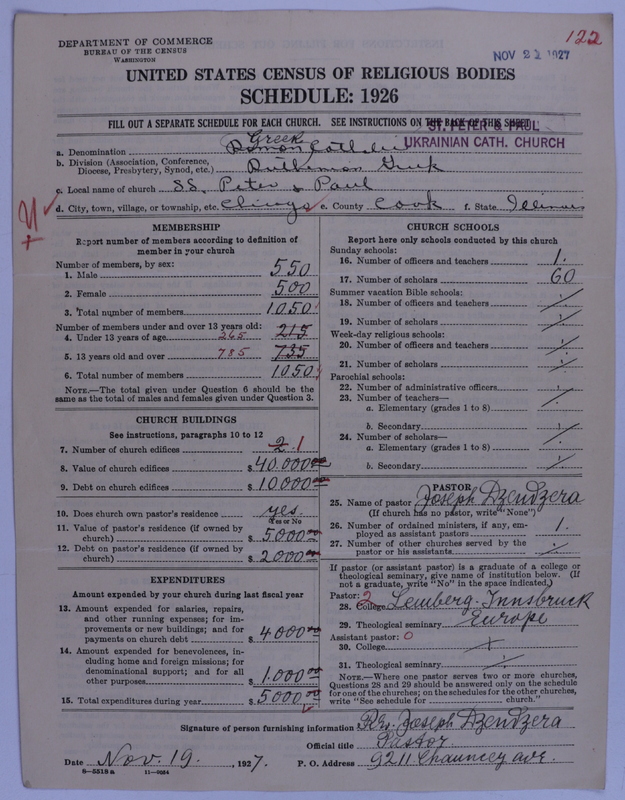 DEPARTMENT OF COMMERCE
BUREAU OF THE CENSUS
WASHINGTON
NOV 22 1927
122
UNITED STATES CENSUS OF RELIGIOUS BODIES
SCHEDULE: 1926
FILL OUT A SEPARATE SCHEDULE FOR EACH CHURCH. SEE INSTRUCTIONS ON THE BACK OF THIS SHEET
ST. PETER & PAUL
UKRAINIAN CATH. CHURCH
Greek
a. Denomination Roman Catholic
b. Division (Association, Conference, Diocese, Presbytery, Synod, etc.) Ruthenian Greek
c. Local name of church SS. Peter & Paul
d. City, town, village, or township, etc. Chicago e. County Cook f. State Illinois
MEMBERSHIP
Report number of members according to definition of
member in your church
Number of members, by sex:
1. Male 550
2. Female 500
3. Total number of members 1050
Number of members under and over 13 years old:
4. Under 13 years of age 265 215
5. 13 years old and over 785 735
6. Total number of members 1050
NOTE.—The total given under Question 6 should be
same as the total of males and females given under Question 3.
CHURCH BUILDINGS
See instructions, paragraphs 10 to 12
7. Number of church edifices 2 1
8. Value of church edifices $ 40.000 00
9. Debt on church edifices $ 10000 00
10. Does church own pastor's residence yes.
Yes or No
11. Value of pastor's residence (if owned by
church) $ 5000 00
12. Debt on pastor's residence (if owned by
church) $ 2000 00
EXPENDITURES
Amount expended by your church during last fiscal year
13. Amount expended for salaries, repairs,
and other running expenses; for im-
provements or new buildings; and for
payments on church debt $ 4000 00
14. Amount expended for benevolences, in-
cluding home and foreign missions; for
denominational support; and for all
other purposes $ 1.000 00
15. Total expenditures during year $ 5000 00
CHURCH SCHOOLS
Report here only schools conducted by this church
Sunday schools:
16. Number of officers and teachers 1.
17. Number of scholars 60
Summer vacation Bible schools:
18. Number of officers and teachers
19. Number of scholars
Week-day religious schools:
20. Number of officers and teachers
21. Number of scholars
Parochial schools:
22. Number of administrative officers
23. Number of teachers—
a. Elementary (grades 1 to 8)
b. Secondary
24. Number of scholars—
a. Elementary (grades 1 to 8)
b. Secondary
PASTOR
25. Name of pastor Joseph Dzendzera
(If church has no pastor, write "None")
26. Number of ordained ministers, if any, em-
ployed as assistant pastors 1.
27. Number of other churches served by the
pastor or his assistants
If pastor (or assistant pastor) is a graduate of a college or
theological seminary, give name of institution below. (If
not a graduate, write "No" in the space indicated.)
Pastor: 2
28. College Lemberg-Innsbruck
29. Theological seminary Europe
Assistant pastor: 0
30. College
31. Theological seminary
NOTE.—Where one pastor serves two or more churches,
Questions 28 and 29 should be answered only on the schedule
for one of the churches; on the schedules for the other churches,
write "See schedule for church."
Signature of person furnishing information Rev. Joseph Dzendzera
Official title Pastor
Date Nov. 19, 1927. P. O. Address 9211 Chauncey ave.
8-5518 a 11-9054